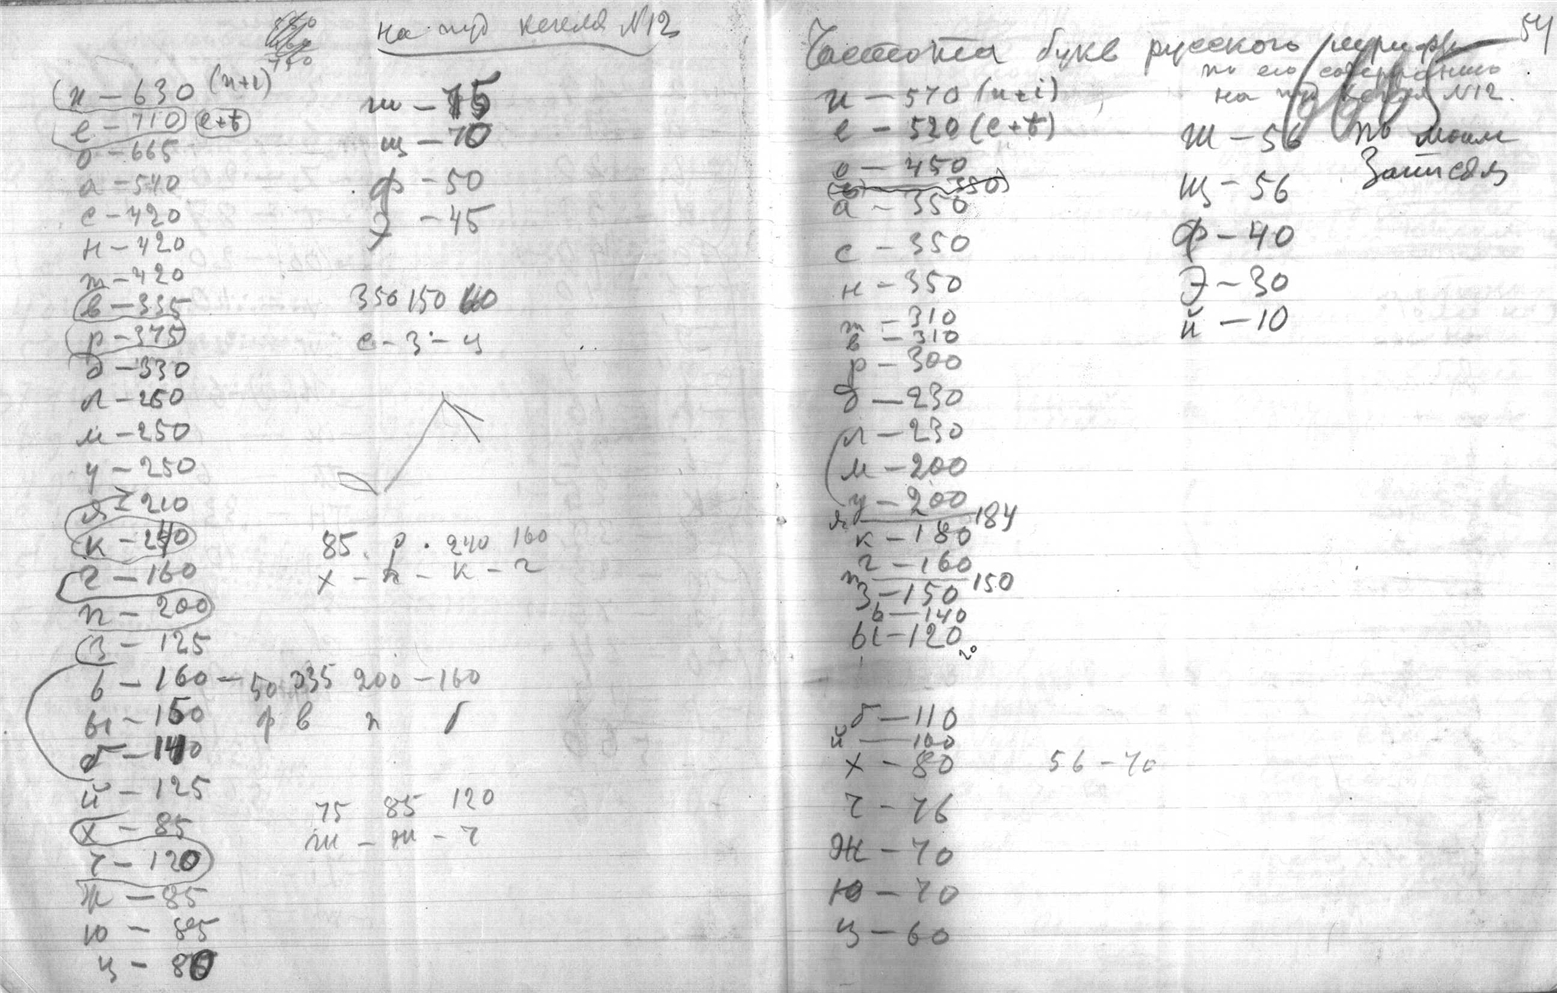 на пуд кегля №12
и – 630 (и+i)
е – 710 (е+ѣ)
о – 665
а – 540
с – 420
н – 420
т – 420
в – 335
р – 375
д – 330
л – 250
м – 250
у – 250
я – 210
к – 240
г – 160
п – 200
з – 125
ь – 160 – 50 335 200 – 160
ы – 150 р в п б
б – 140
й – 125
х – 85
ч – 120
ж – 85
ю – 85
ц – 80
ш – 75
щ – 70
ф – 50
э – 45
350 150 60
с – з – ц
85 . р . 240 160
х – п – к – г
75 85 120
ш – ж – ч
54
Частота букв русского шрифта
по его содержанию
на пуд кегля №12.
по моим
Записям
и – 570 (и+i)
е – 520 (е+ѣ)
о – 450
а – 350
с – 350
н – 350
т – 310
в – 310
р – 300
д – 230
л – 230
м – 200
у – 200
я 184
к – 180
г – 160
п 150
з – 150
ь – 140
ы – 120
б – 110
й – 100
х – 80
ч – 76
ж – 70
ю – 70
ц – 60
Ш – 56
Щ – 56
Ф – 40
Э – 30
й – 10
56 – 70